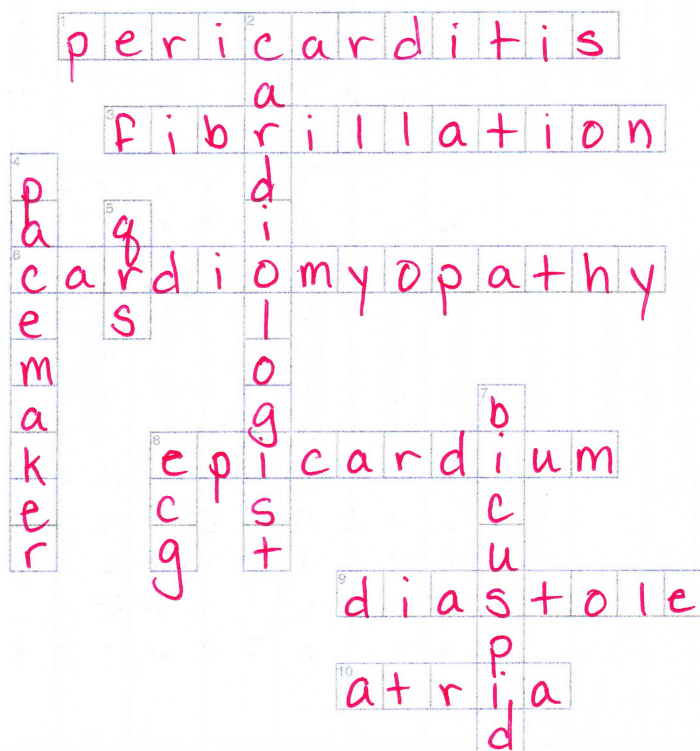 1 pericarditis
2 cardiologist
3 fibrillation
4 pacemaker
5 qrs
6 cardiomyopathy
7 bicuspid
8 epicardium
8 ecg
9 diastole
10 atria